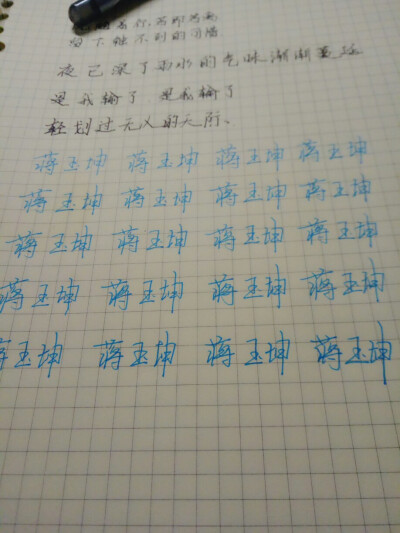 若即若离
留下触不到的
夜已深了雨水的气味渐渐蔓延
是我输了 是我输了
轻划过无人的天际、
蒋玉坤 蒋玉坤 蒋玉坤 蒋玉坤
蒋玉坤 蒋玉坤 蒋玉坤 蒋玉坤
蒋玉坤 蒋玉坤 蒋玉坤 蒋玉坤
蒋玉坤 蒋玉坤 蒋玉坤 蒋玉坤
蒋玉坤 蒋玉坤 蒋玉坤 蒋玉坤